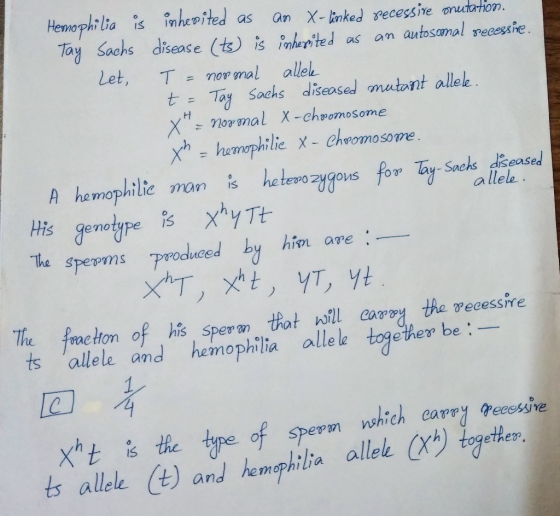 Hemophilia is inherited as an X-linked recessive mutation.
Tay Sachs disease (ts) is inherited as an autosomal recessive.
Let, T = normal allele
t = Tay Sachs diseased mutant allele.
Xᴴ = normal X-chromosome
Xʰ = hemophilic X-chromosome.
A hemophilic man is heterozygous for Tay-Sachs diseased
allele.
His genotype is XʰYTt
The sperms produced by him are :—
XʰT, Xʰt, YT, Yt.
The fraction of his sperm that will carry the recessive
ts allele and hemophilia allele together be :—
C 1/4
Xʰt is the type of sperm which carry recessive
ts allele (t) and hemophilia allele (Xʰ) together.